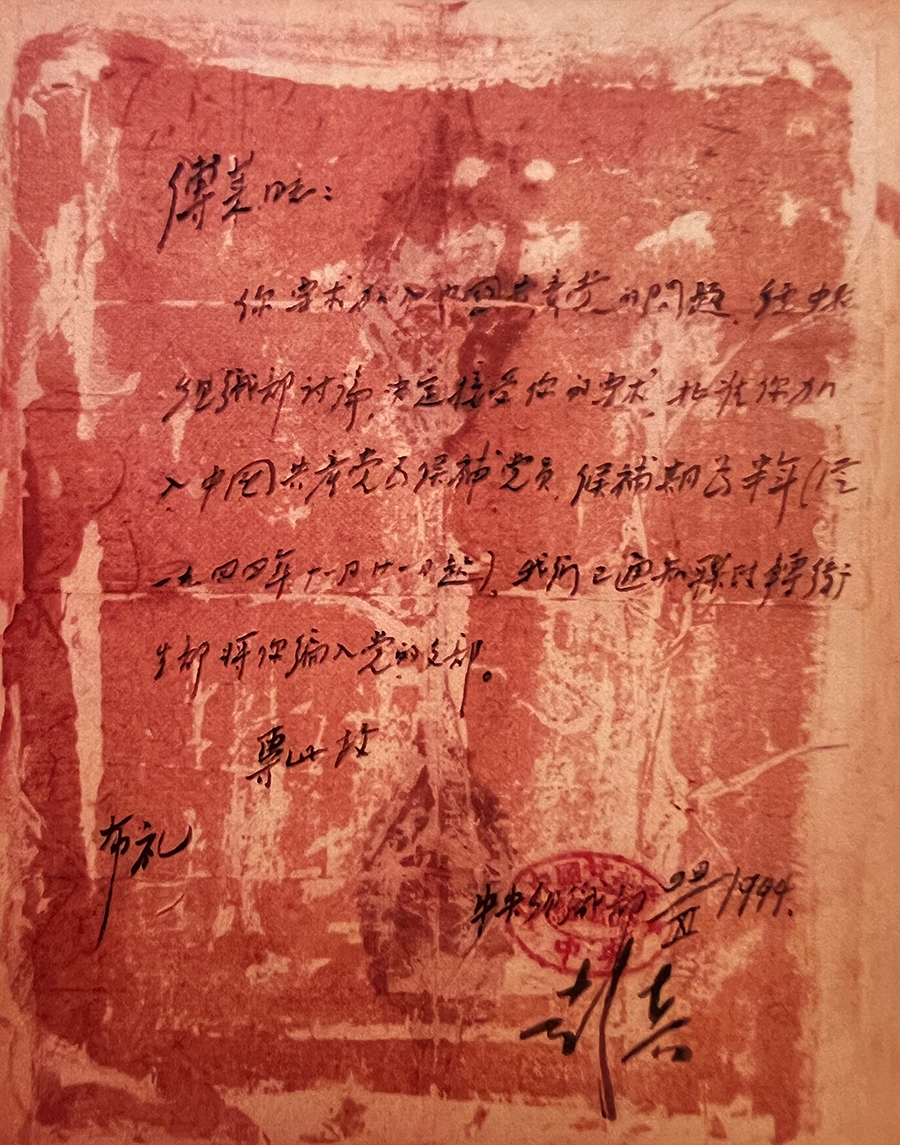 傅莱同志：
你要求加入中国共产党的问题，经中央
组织部讨论，决定接受你的要求，批准你加
入中国共产党为候补党员，候补期为半年（从
一九四四年十一月廿一日起），我们已通知联政轉衛
生部将你编入党的支部。
專此 致
布礼
中央组织部 XI 1944.
彭真